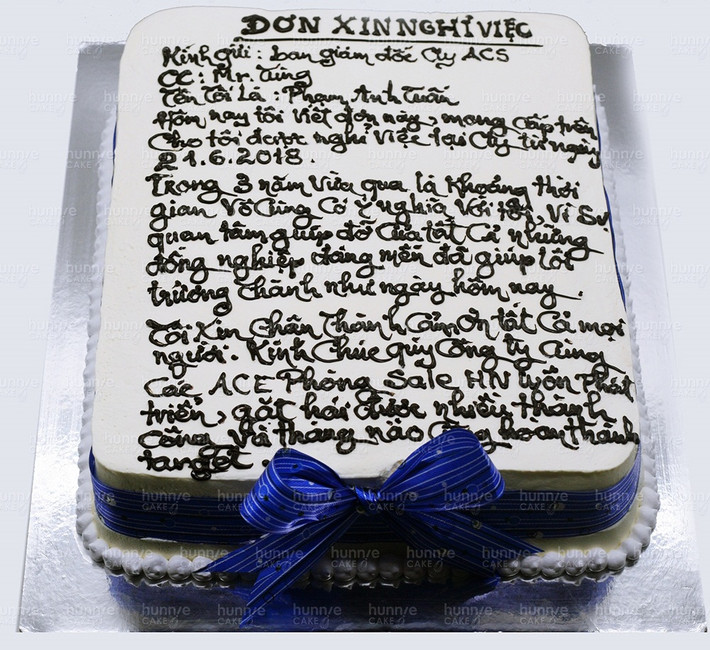 ĐƠN XIN NGHỈ VIỆC
Kính gửi : ban giám đốc Cty ACS
CC : Mr. Tùng
Tên Tôi Là : Phạm Anh Tuấn
Hôm nay tôi viết đơn này, mong cấp trên
Cho tôi được nghỉ việc tại Cty từ ngày
21.6.2018.
Trong 3 năm vừa qua là khoảng thời
gian vô cùng có ý nghĩa với tôi, vì sự
quan tâm giúp đỡ của tất cả những
đồng nghiệp đáng mến đã giúp tôi
trưởng thành như ngày hôm nay.
Tôi xin chân thành cảm ơn tất cả mọi
người. Kính chúc quý công ty cùng
các ACE Phòng Sale HN luôn phát
triển, gặt hái được nhiều thành
công và tháng nào cũng hoàn thành
target.
hunnie
CAKE